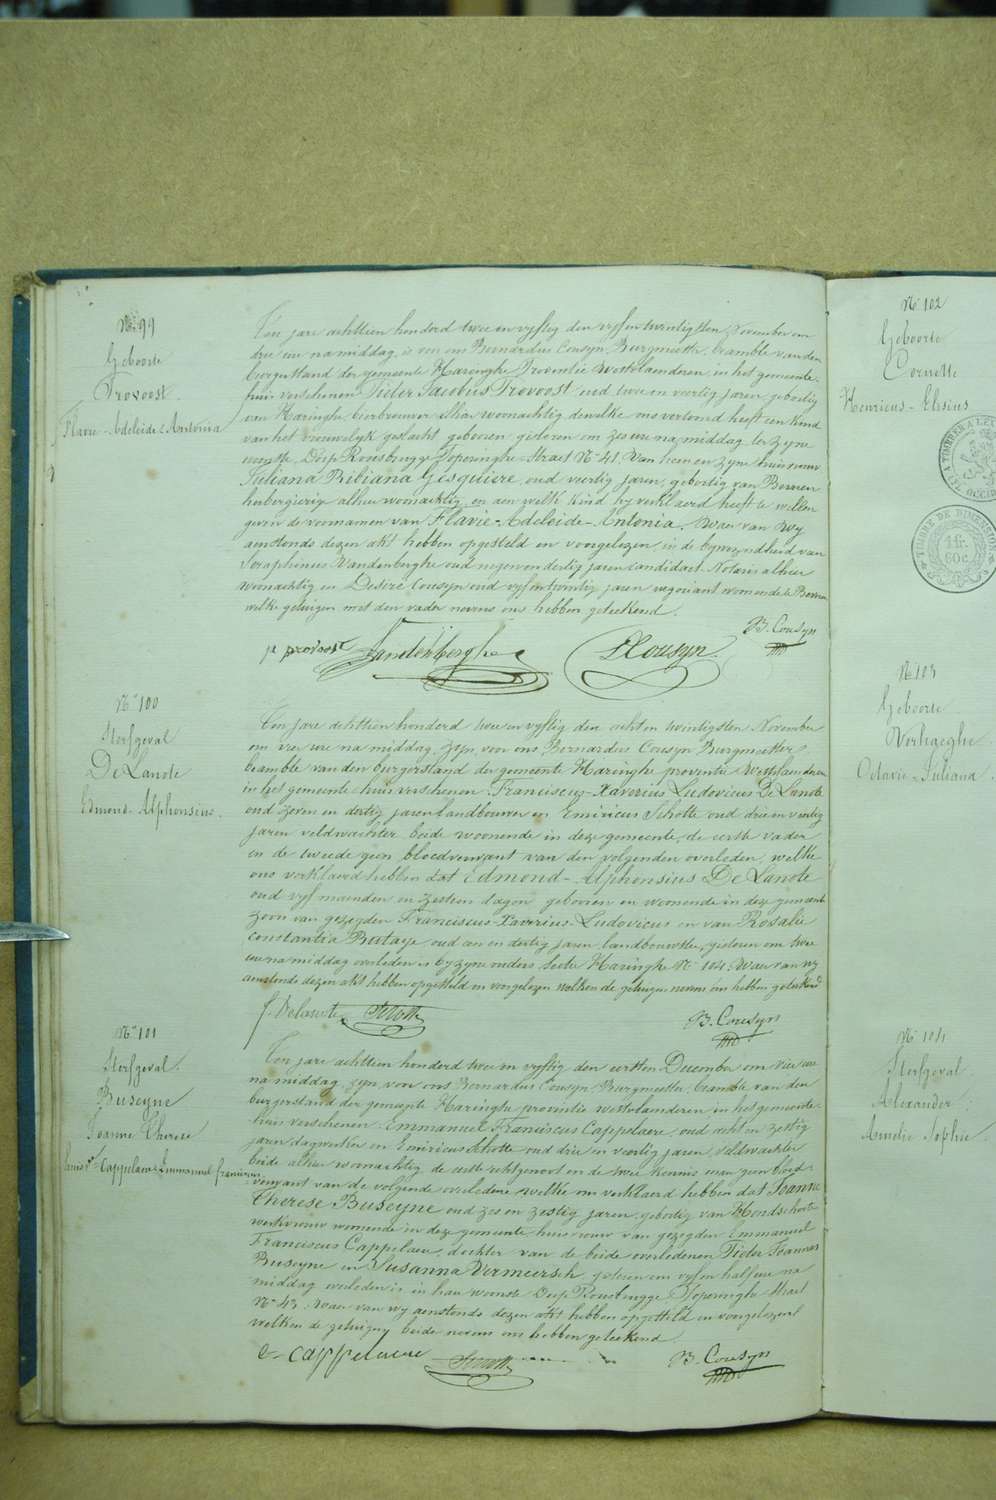 N° 99
Geboorte
Provoost.
Flavie-Adeleide-Antonia
Ten jare achttien honderd twee en vyftig den vyf en twintigsten November om
drie ure na middag, is voor ons Bernardus Cousyn, Burgmeester, beambte van den
burgerstand der gemeente Haringhe Provencie Westvlaenderen, in het gemeente-
huis verschenen Pieter Jacobus Provoost oud twee en veertig jaren, geboortig
van Haringhe, bierbrouwer alhier woonachtig dewelke ons vertoond heeft een kind
van het vrouwelyk geslacht geboren gisteren om zes ure na middag ter zyne
woonste Dorp Rousbrugge Poperinghe-Straet N° 41. Van hem en zyne huisvrouw
Juliana Bibiana Gesquiere, oud veertig jaren, geboortig van Beveren
herbergierige alhier woonachtig, en aen welk kind hy verklaerd heeft te willen
geven de voornamen van Flavie-Adeleide-Antonia. Waer van wy
aenstonds dezen akt hebben opgesteld en voorgelezen in de bywezendheid van
Seraphinus Vandenberghe oud negen en dertig jaren candidaet Notaris alhier
woonachtig en Desiré Cousyn oud vyf en twintig jaren negoviant woonende te Beveren
welke getuigen met den vader nevens ons hebben geteekend.
pj provoost Vandenberghe D Cousyn B. Cousyn
N° 100
Sterfgeval
De Lanote
Edmond-Alphonsius.
Ten jare achttien honderd twee en vyftig den acht en twintigsten November
om vier ure na middag, zyn voor ons Bernardus Cousyn Burgmeester
beambte van den burgerstand der gemeente Haringhe provencie Westvlaenderen
in het gemeente huis verschenen Franciscus-Xaverius Ludovicus De Lanote
oud zeven en dertig jaren landbouwer en Emiricus Schotte oud drie en veertig
jaren veldwachter beide woonende in deze gemeente, de eerste vader
en de tweede geen bloedverwant van den volgenden overleden, welke
ons verklaerd hebben dat Edmond-Alphonsius De Lanote
oud vyf maenden en zestien dagen geboren en woonende in deze gemeente
zoon van gezegden Franciscus-Xaverius-Ludovicus en van Rosalie
Constantia Butaye oud een en dertig jaren landbouwster, gisteren om twee
ure na middag overleden is by zyne ouders Sectie Haringhe N° 104. Waer van wy
aenstonds dezen akt hebben opgesteld en voorgelezen welken de getuigen nevens ons hebben geteekend
f. Delanote Schotte B. Cousyn
N° 101
Sterfgeval.
Buseyne
Joanne Therese
huisv. Cappelaere Emmanuel franciscus
Ten jare achttien honderd twee en vyftig den eersten December om vier ure
na middag, zyn voor ons Bernardus Cousyn Burgmeester, beambte van den
burgerstand der gemeente Haringhe provencie westvlaenderen in het gemeente-
huis verschenen Emmanuel Franciscus Cappelaere, oud acht en zestig
jaren dagwerker en Emiricus Schotte oud drie en veertig jaren, veldwachter
beide alhier woonachtig de eerste echtgenoot en de twee kennis maer geen bloed-
verwant van de volgende overledene welke ons verklaerd hebben dat Joanne
Therese Buseyne oud zes en zestig jaren, geboortig van Hondschoote
werkvrouw woonende in deze gemeente huisvrouw van gezegden Emmanuel
Franciscus Cappelaere, dochter van de beide overledenen Pieter Joannes
Buseyne en Susanna Vermeersch, gisteren om vyf en half ure na
middag overleden is in haer woonste Dorp Rousbrugge Poperinghe-Straet
N° 43. Waer van wy aenstonds dezen akt hebben opgesteld en voorgelezen
welken de getuigen beide nevens ons hebben geteekend.
e-cappelaere Schotte B. Cousyn
N° 102
Geboorte
Cornette
Henricus-Elisius
TIMBRE DE DIMENSION
1 fr.
60 c.
N° 103
Geboorte
Verhaeghe.
Octavie-Juliana.
N° 104
Sterfgeval.
Alexander
Amelie-Sophie.